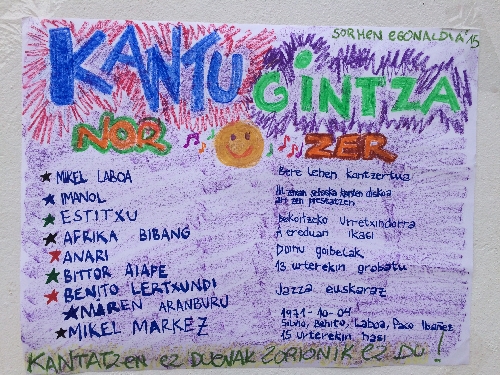 SORMEN EGONALDIA '15
KANTU
GINTZA
NOR
ZER
MIKEL LABOA
IMANOL
ESTITXU
AFRIKA BIBANG
ANARI
BITTOR AIAPE
BENITO LERTXUNDI
MAREN ARANBURU
MIKEL MARKEZ
Bere lehen kantzertua
diskoa
prestatzen
bakoitzeko Urretxindorra
ereduan ikasi
Doinu goibelak
13 urterekin grabatu
Jazza euskaraz
1971-10-04
Silvio, Beñito, Laboa, Paco Ibañez
15 urterekin hasi
KANTATZEN EZ DUENAK ZORIONIK EZ DU!